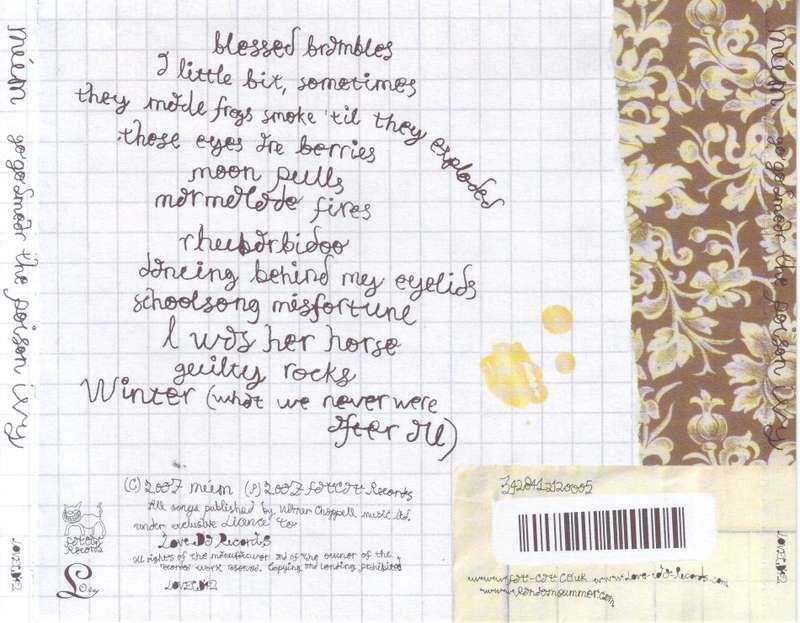 blessed brambles
A little bit, sometimes
they made frogs smoke 'til they exploded
those eyes are berries
moon pulls
marmalade fires
rhuubarbidoo
dancing behind my eyelids
schoolsong misfortune
I was her horse
guilty rocks
Winter (what we never were
after all)
(C) 2007 múm (p) 2007 FatCat Records
All songs published by Warner Chappell music ltd.
under exclusive licence to
Love-Da Records
All rights of the manufacturer and of the owner of the
recorded work reserve. Copying and lending prohibited
LOVECD42
FatCat
Records
Love
342841212
www.fat-cat.co.uk www.Love-da-Records.com
www.randomsummer.com
múm go go smear the poison ivy
LOVECD42
múm go go smear the poison ivy
LOVECD42